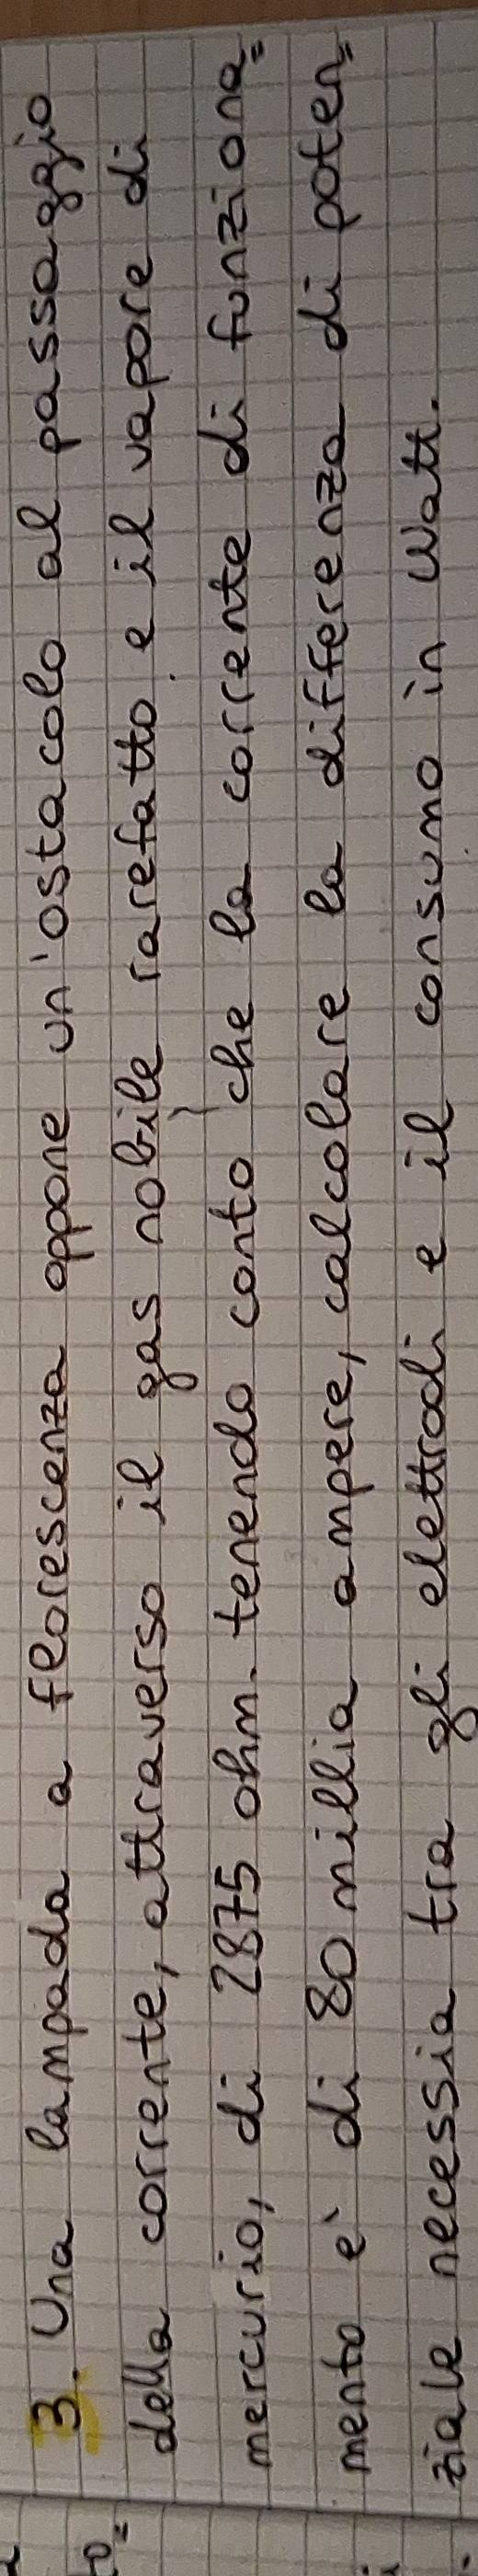 3. Una lampada a florescenza oppone un'ostacolo al passaggio
della corrente, attraverso il gas nobile rarefatto e il vapore di
mercurio, di 2875 ohm. tenendo conto che la corrente di funziona=
mento e' di 80 millia ampere, calcolare la differenza di poten=
ziale necessia tra gli elettrodi e il consumo in Watt.